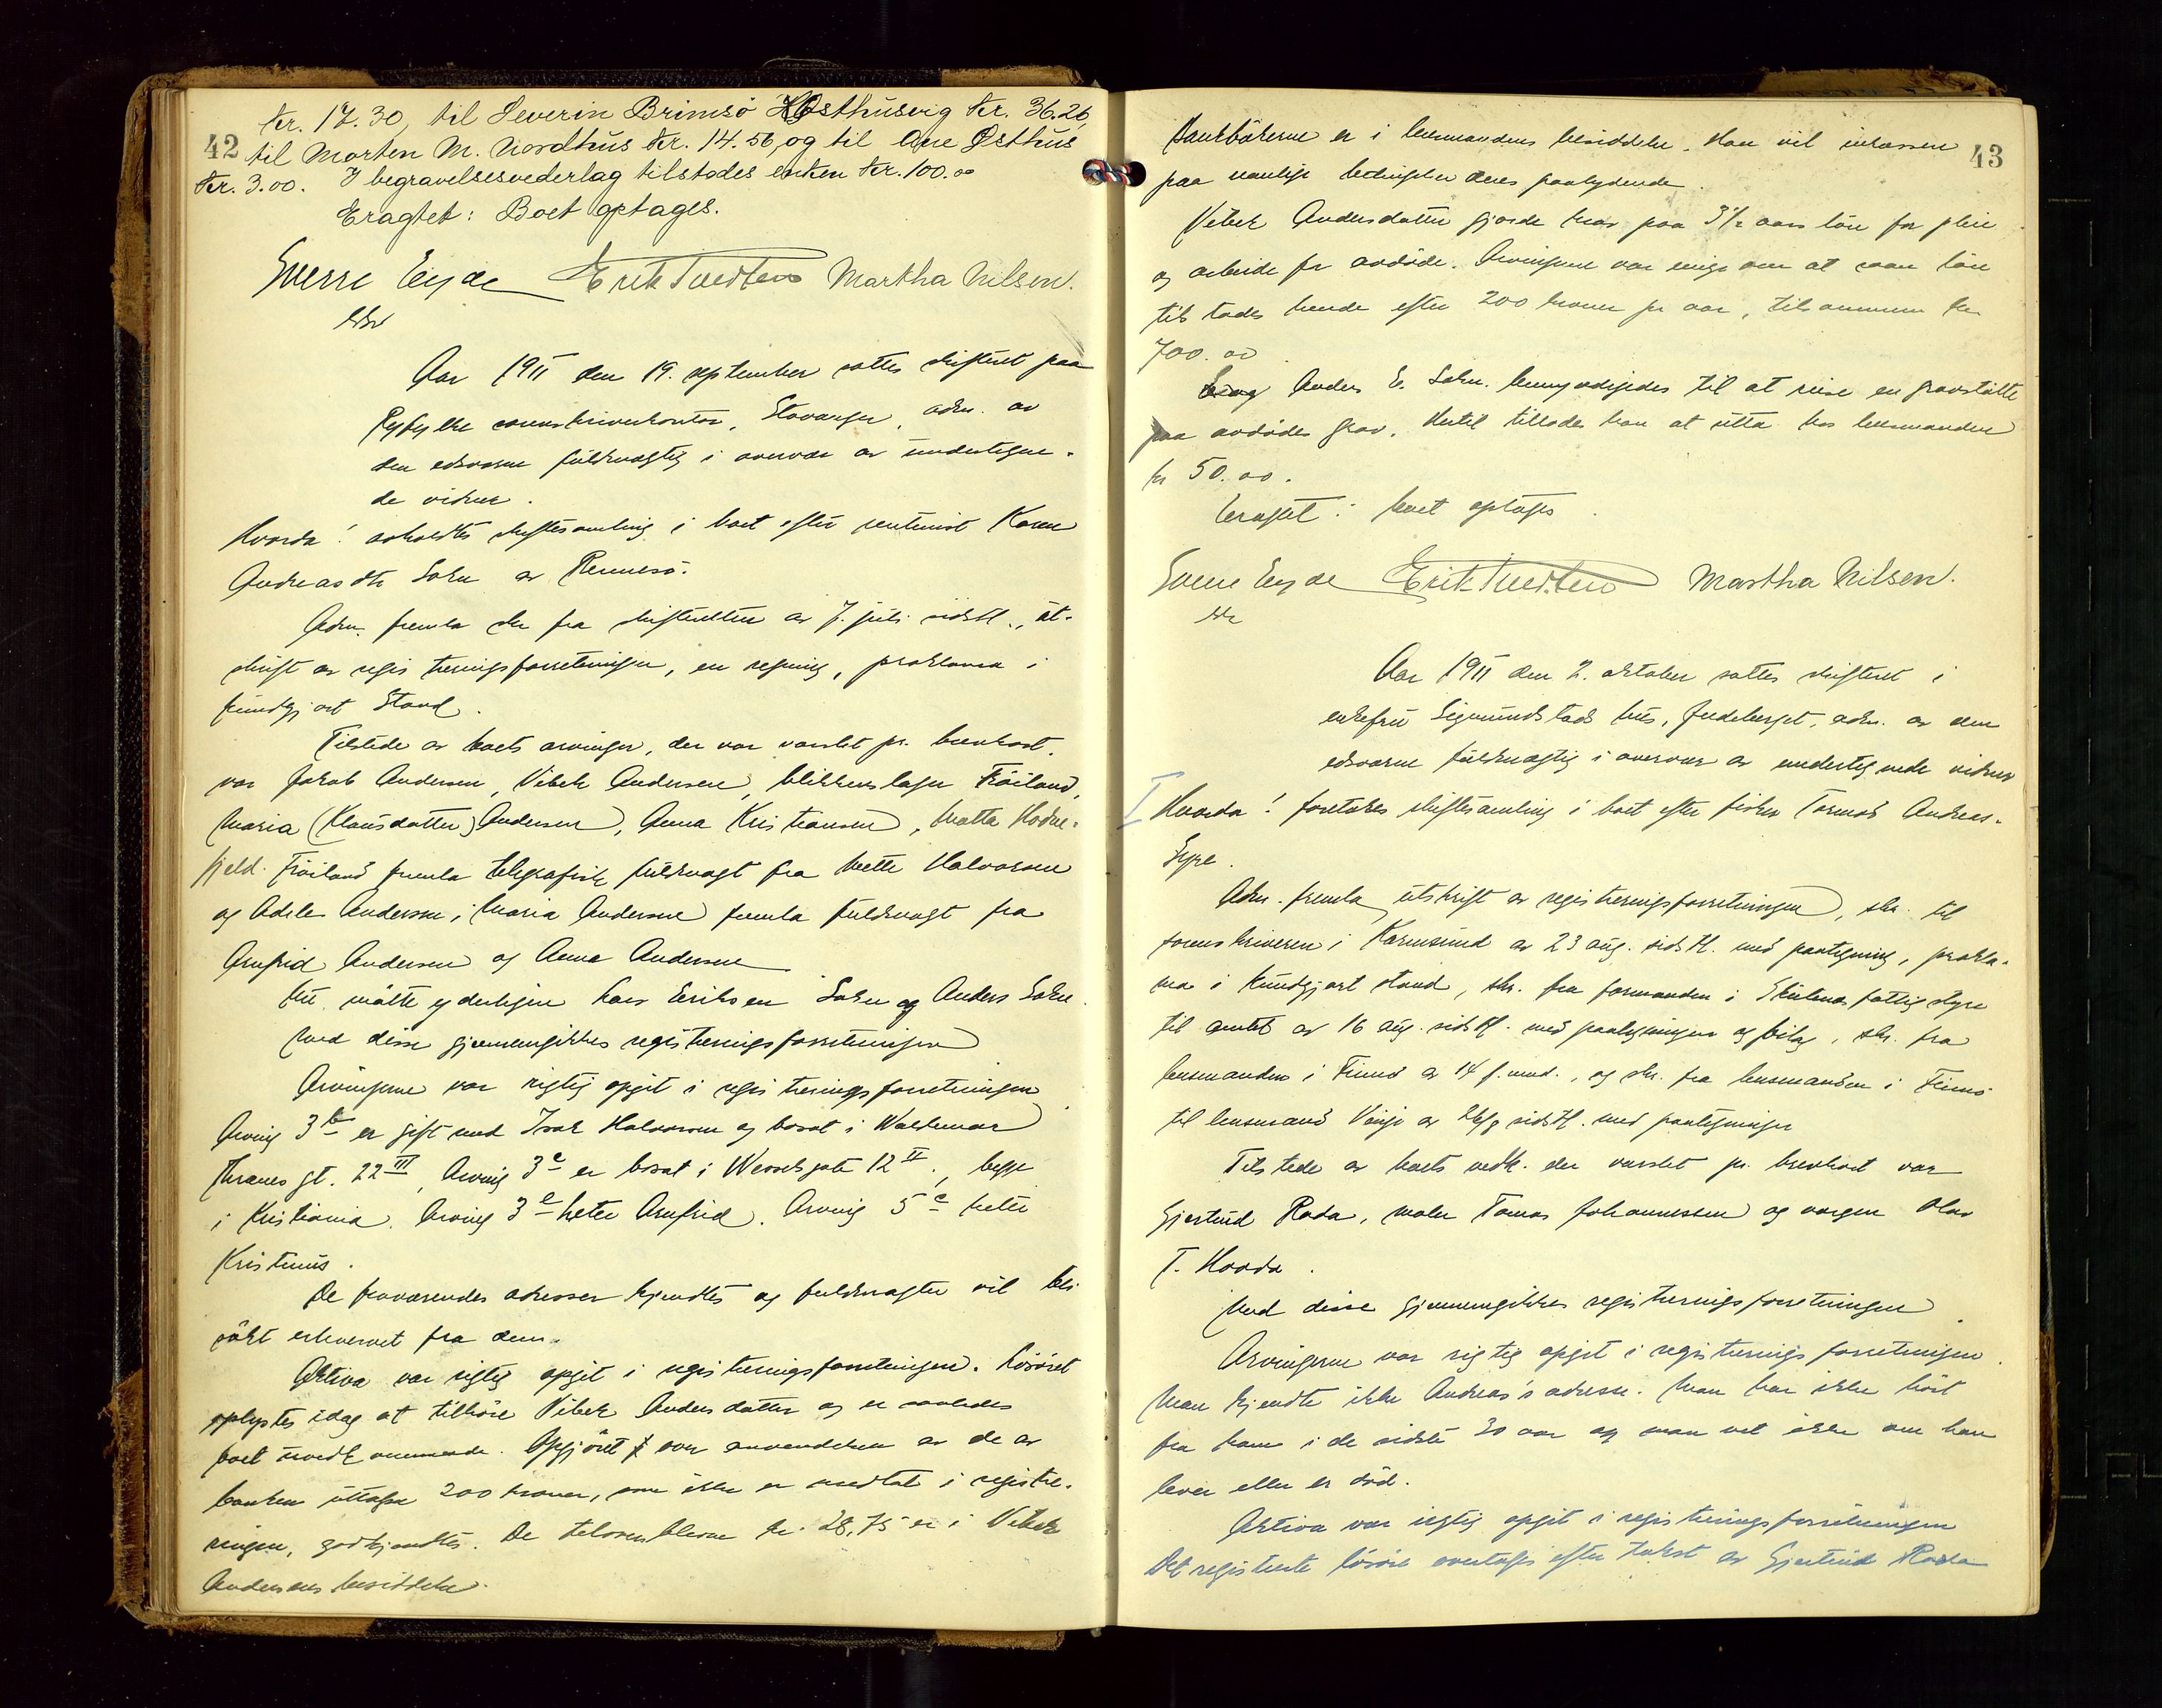 42
kr. 17.30, til Severin Brimsö Østhusvig kr. 36.26,
til Morten M. Nordhus kr. 14.56, og til Ane Østhus
kr. 3.00. I begravelsesvederlag tilstodes enken kr. 100.00
Eragtet: Boet optages.
Sverre Eyde Erik Tvedten Martha Nilsen.
Aar 1911 den 19. september sattes skifteret paa
Ryfylke sorenskriverkontor, Stavanger, adm. av
den edsvorne fuldmægtig i overvær av undertegne-
de vidner.
Hvorda: avholdtes skiftesamling i boet efter rentenist Karen
Andreasdtr Sokn av Rennesö.
Adm. fremla skr fra skifteretten av 7. juli sidstl., ut-
skrift av registreringsforretningen, en regning, proklama i
kundgjort stand.
Tilstede av boets arvinger, der var varslet pr. brevkort
var Jakob Andersen, Vibek Andersen, blikkenslager Fröiland,
Maria (Klausdatter) Andersen, Anna Kristiansen, Matta Hodne-
fjeld. Fröiland fremla telegrafisk fuldmagt fra Mette Halvorsen
og Adele Andersen, Maria Andersen fremla fuldmagt fra
Arnfrid Andersen og Anna Andersen
 mötte yderligere Lars Eriksen Sokn og Anders Sokn.
Med disse gjennemgikkes registreringsforretningen
Arvingerne var rigtig opgit i registreringsforretningen.
Arving 3 b er gift med Isak Halvorsen og bosat i Waldemar
Thranes gt. 22 III, Arving 3 c er bosat i Wesselsgate 12 II, begge
i Kristiania. Arving 3 e heter Arnfrid. Arving 5 c heter
Kristinus.
De fraværendes adresser kjendtes og fuldmagter vil bli
sökt erhvervet fra dem.
Aktiva var rigtig opgit i registreringsforretningen. Lösöret
oplystes idag at tilhöre Vibek Andersdatter og er saaledes
boet uvedkommende. Opgjöret over anvendelsen av de av
banken uttagne 200 kroner, som ikke er medtat i registre-
ringen, godkjendtes. De tiloversblevne kr. 28,75 er i Vibek
Andersens besiddelse.
43
Bankbökerne er i lensmandens besiddelse. Han vil inkassere
paa vanlige betingelser deres paalydende.
Vibek Andersdatter gjorde krav paa 3 1/2 aars lön for pleie
og arbeide for avdöde. Arvingerne var enige om at saan lön
tilstodes hende efter 200 kroner pr aar, tilsammen kr.
700.00.
Anders E. Sokn. bemyndigedes til at reise en gravstötte
paa avdödes grav. Hertil tillodes han at utta hos lensmanden
kr 50.00.
Eragtet: boet optages.
Sverre Eyde Erik Tvedten Martha Nilsen.
Aar 1911 den 2. oktober sattes skifteret i
enkefru Sigmundstads hus, Judeberget, adm. av den
edsvorne fuldmægtig i overvær av undertegnede vidner
I Hvorda: foretokes skiftesamling i boet efter fisker Tormod Andreas.
Adm. fremla utskrift av registreringsforretningen, skr. til
sorenskriveren i Karmsund av 23 aug. sidstl. med paategning, prokla-
ma i kundgjort stand, skr. fra formanden i Skjolds fattigstyre
til amtet av 16 aug. sidstl. med paategninger og bilag, skr. fra
lensmanden i Finnö av 14 f. md., og skr. fra lensmanden i Finnö
til lensmand sidstl. med paategninger
Tilstede av boets vedk. der varslet pr. brevkort var
Gjertrud Rada, maler Tomas Johannessen og vergen Olav
T. Hovda.
Med disse gjennemgikkes registreringsforretningen.
Arvingerne var rigtig opgit i registreringsforretningen.
Man kjendte ikke Andreas's adresse. Man har ikke hört
fra ham i de sidste 30 aar og man vet ikke om han
lever eller er död.
Aktiva var rigtig opgit i registreringsforretningen
Det registrerte lösöre overtages efter takst av Gjertrud Rada